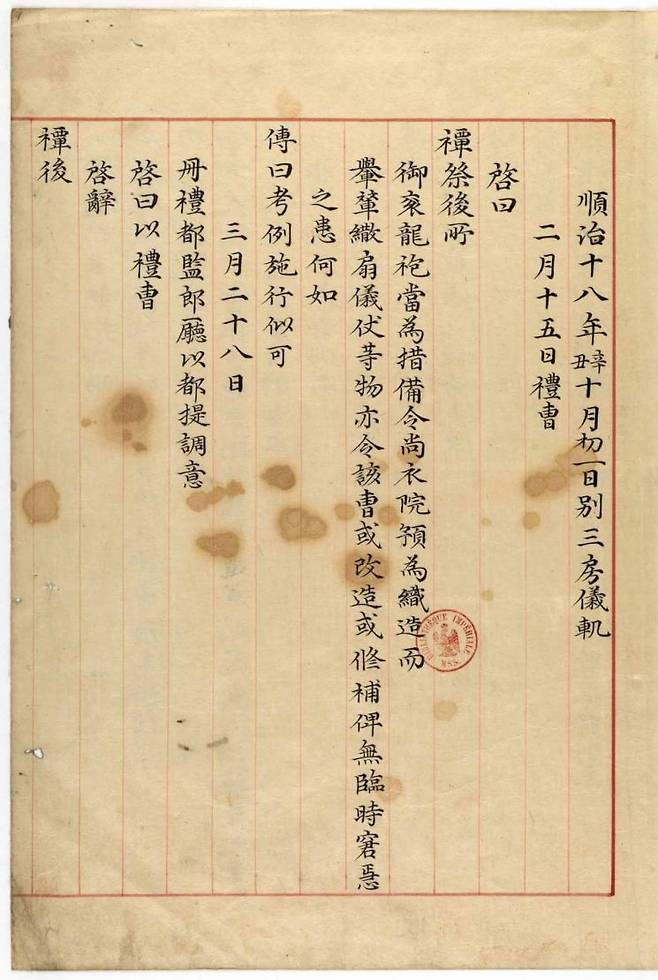 順治十八年辛丑十月初一日別三房儀軌
二月十五日禮曹
啓曰
禫祭後所
御衮龍袍當為措備令尚衣院預為織造而
轝輦繖扇儀仗等物亦令該曹或改造或修補俾無臨時窘急
之患何如
傳曰考例施行似可
三月二十八日
冊禮都監郎廳以都提調意
啓曰以禮曹
啓辭
禫後
BIBLIOTHÈQUE IMPÉRIALE MSS.